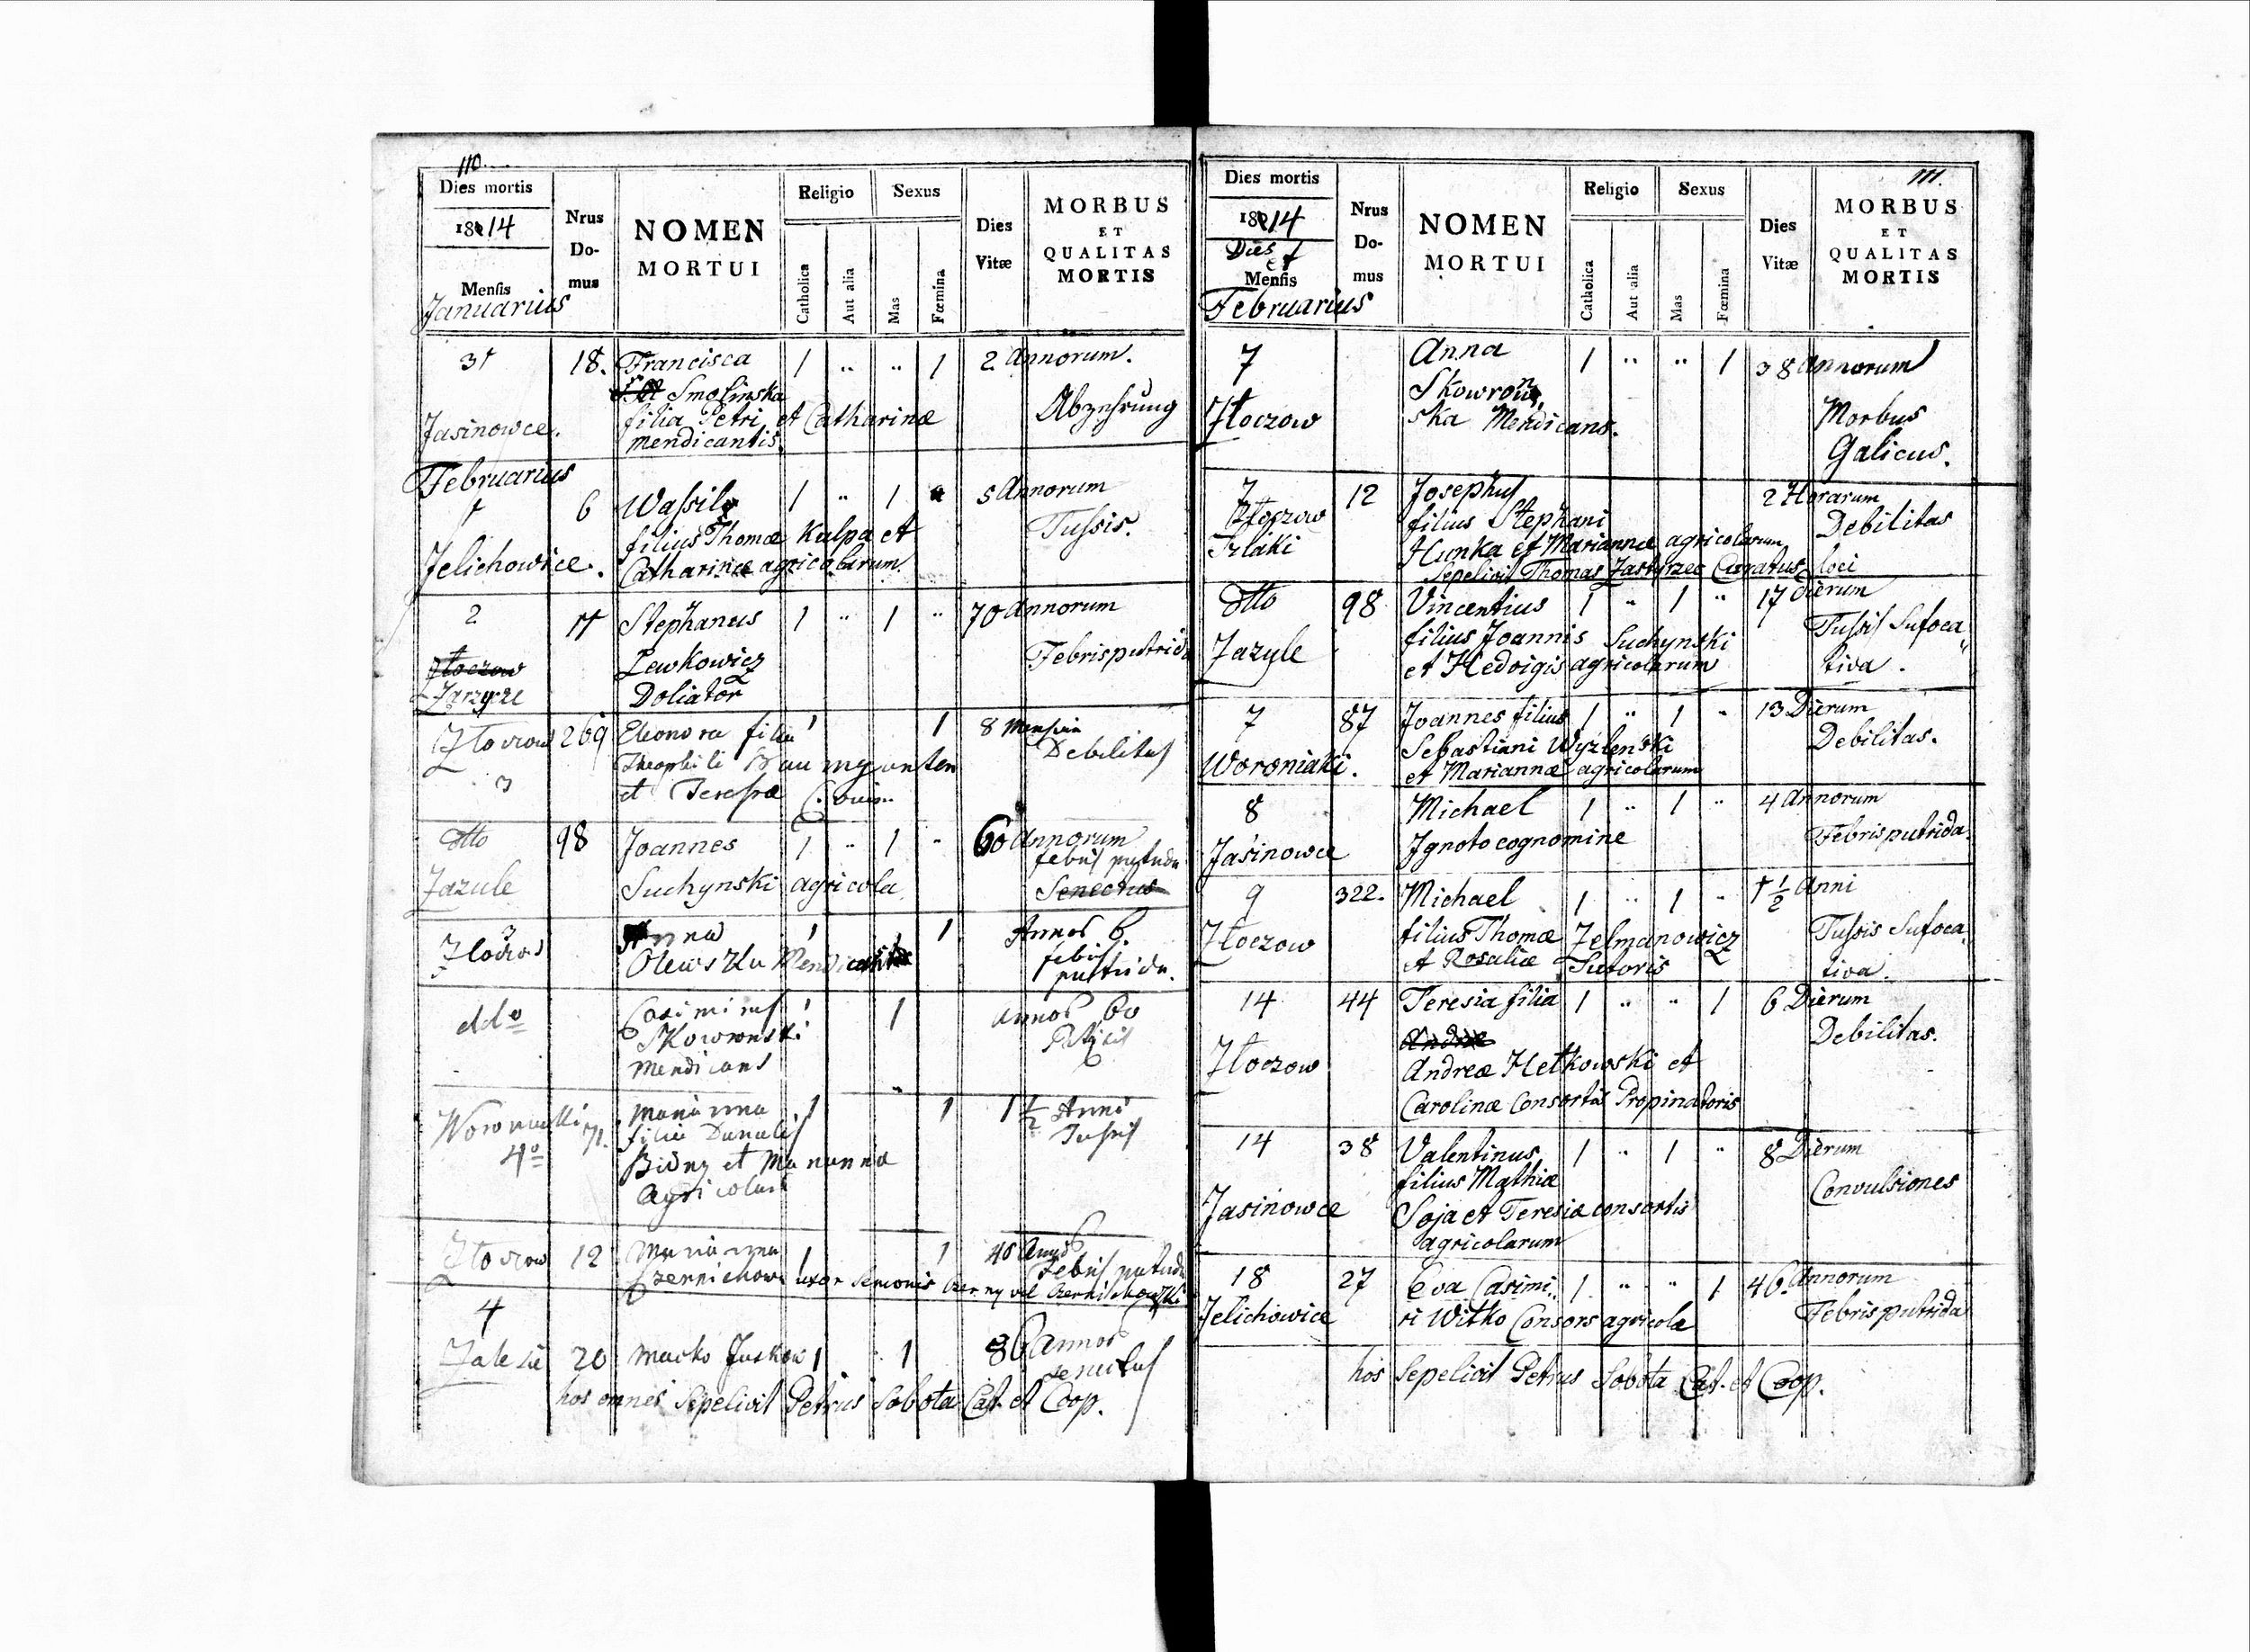 110.
Dies mortis
1814
Mensis
Januarius
Nrus
Do-
mus
NOMEN
MORTUI
Religio
Catholica
Aut alia
Sexus
Mas
Fœmina
Dies
Vitæ
MORBUS
ET
QUALITAS
MORTIS
31 18. Francisca 1 .. .. 1 2 Annorum.
Smolinska
filia Petri et Catharinæ Abzehrung
Jasinowce. mendicantis.
Februarius
1 6 Wassil 1 .. 1 5 Annorum
filius Thomæ Kulpa et Tussis.
Jelichowice. Catharinæ agricolarum.
2 Stephanus 1 .. 1 .. 70 Annorum
Złoczow Lewkowicz Febris putrida
Zarzyze Doliator
Złoczow 269 Eleonora filia 1 1 8 Mensium
Theophili Debilitas
3 et Teresæ
dtto 98 Joannes 1 .. 1 .. 60 Annorum
febris putrida
Zazule Suchynski agricola Senectus
3 Anna 1 1 Annos 6
Złoczow Olewska febris
putrida.
ddo Casimirus 1 1 Annos 60
Skowronski
Mendicans
Woroniaki 71. Marianna 1 1 1 1/2 Anni
filia Danielis Tussis
4o Bidny et Marianna
Agricolar
Złoczow 12 Marianna 1 1 40
Czernichow uxor Semonis Czerny vel Czernichowski Febris putrida
4
Zalesie 20 Macko Juskow 1 1 86 Annos
senectus
hos omnes Sepelivit Petrus Sobota Cat. et Coop.
111.
Dies mortis
1814
Dies et
Mensis
Februarius
Nrus
Do-
mus
NOMEN
MORTUI
Religio
Catholica
Aut alia
Sexus
Mas
Fœmina
Dies
Vitæ
MORBUS
ET
QUALITAS
MORTIS
7 Anna 1 .. .. 1 38 Annorum
Skowron,
Złoczow ska Mendicans. Morbus
Galicus.
7 12 Josephus 2 Horarum
Złoczow filius Stephani Debilitas
Szlaki Hunka et Mariannæ agricolarum
Sepelivit Thomas Zastyrzec Curatus loci
dtto 98 Vincentius 1 .. 1 .. 17 Dierum
filius Joannis Suchynski Tussis Sufoca„
Zazule et Hedvigis agricolarum tiva.
7 87 Joannes filius 1 .. 1 .. 13 Dierum
Sebastiani Wyzlenski Debilitas.
Woroniaki. et Mariannæ agricolarum
8 Michael 1 .. 1 .. 4 Annorum
Jasinowce Ignoto cognomine Febris putrida.
9 322. Michael 1 .. 1 .. 1 1/2 Anni
filius Thomæ Zelmanowicz Tussis Sufoca„
Złoczow et Rosaliæ Sutoris tiva.
14 44 Teresia filia 1 .. .. 1 6 Dierum
Andreæ Debilitas.
Złoczow Andreæ Hetkowski et
Carolinæ Consortis Propinatoris
14 38 Valentinus 1 .. 1 .. 8 Dierum
filius Mathiæ Convulsiones
Jasinowce Soja et Teresiæ consortis
agricolarum
18 27 Eva Casimi„ 1 .. .. 1 46 Annorum
Jelichowice ri Witko Consors agricolæ Febris putrida
hos Sepelivit Petrus Sobota Cat. et Coop.